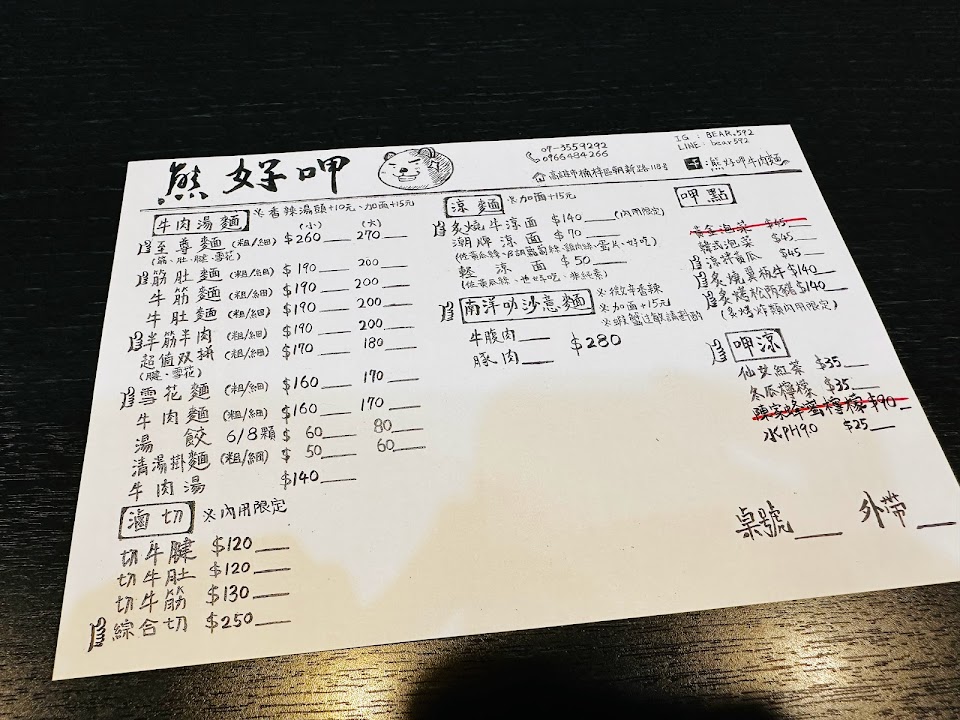 熊好呷
07-3559292
0966484266
高雄市楠梓區朝新路118号
IG : BEAR.592
LINE : bear592
熊好呷牛肉麵
牛肉湯麵 ※香辣湯頭+10元、加面+15元
(小) (大)
至尊麵 (粗/細) $260 270
(筋、肚、腱、雪花)
筋肚麵 (粗/細) $190 200
牛筋麵 (粗/細) $190 200
牛肚麵 (粗/細) $190 200
半筋半肉 (粗/細) $190 200
超值双拼 (粗/細) $170 180
(腱、雪花)
雪花麵 (粗/細) $160 170
牛肉麵 (粗/細) $160 170
湯餃 6/8顆 $60 80
清湯掛麵 (粗/細) $50 60
牛肉湯 $140
滷切 ※內用限定
切牛腱 $120
切牛肚 $120
切牛筋 $130
綜合切 $250
涼麵 ※加面+15元
炙燒牛涼面 $140 (內用限定)
潮牌涼面 $70
蛋片、好吃)
輕涼面 $50
(佐黃瓜絲、
南洋叻沙意麵 ※微汁香辣
※加面+15元
※蝦蟹过敏請斟酌
牛腹肉
豚肉 $280
呷點
黃金泡菜 $45
韓式泡菜 $45
涼拌黃瓜 $45
炙燒翼板牛 $140
炙燒松阪豬 $140
(炙烤炸類內用限定)
呷涼
仙楂紅茶 $35
冬瓜檸檬 $35
陳家蜂蜜檸檬 $90
水PH9.0 $25
桌號 外帶